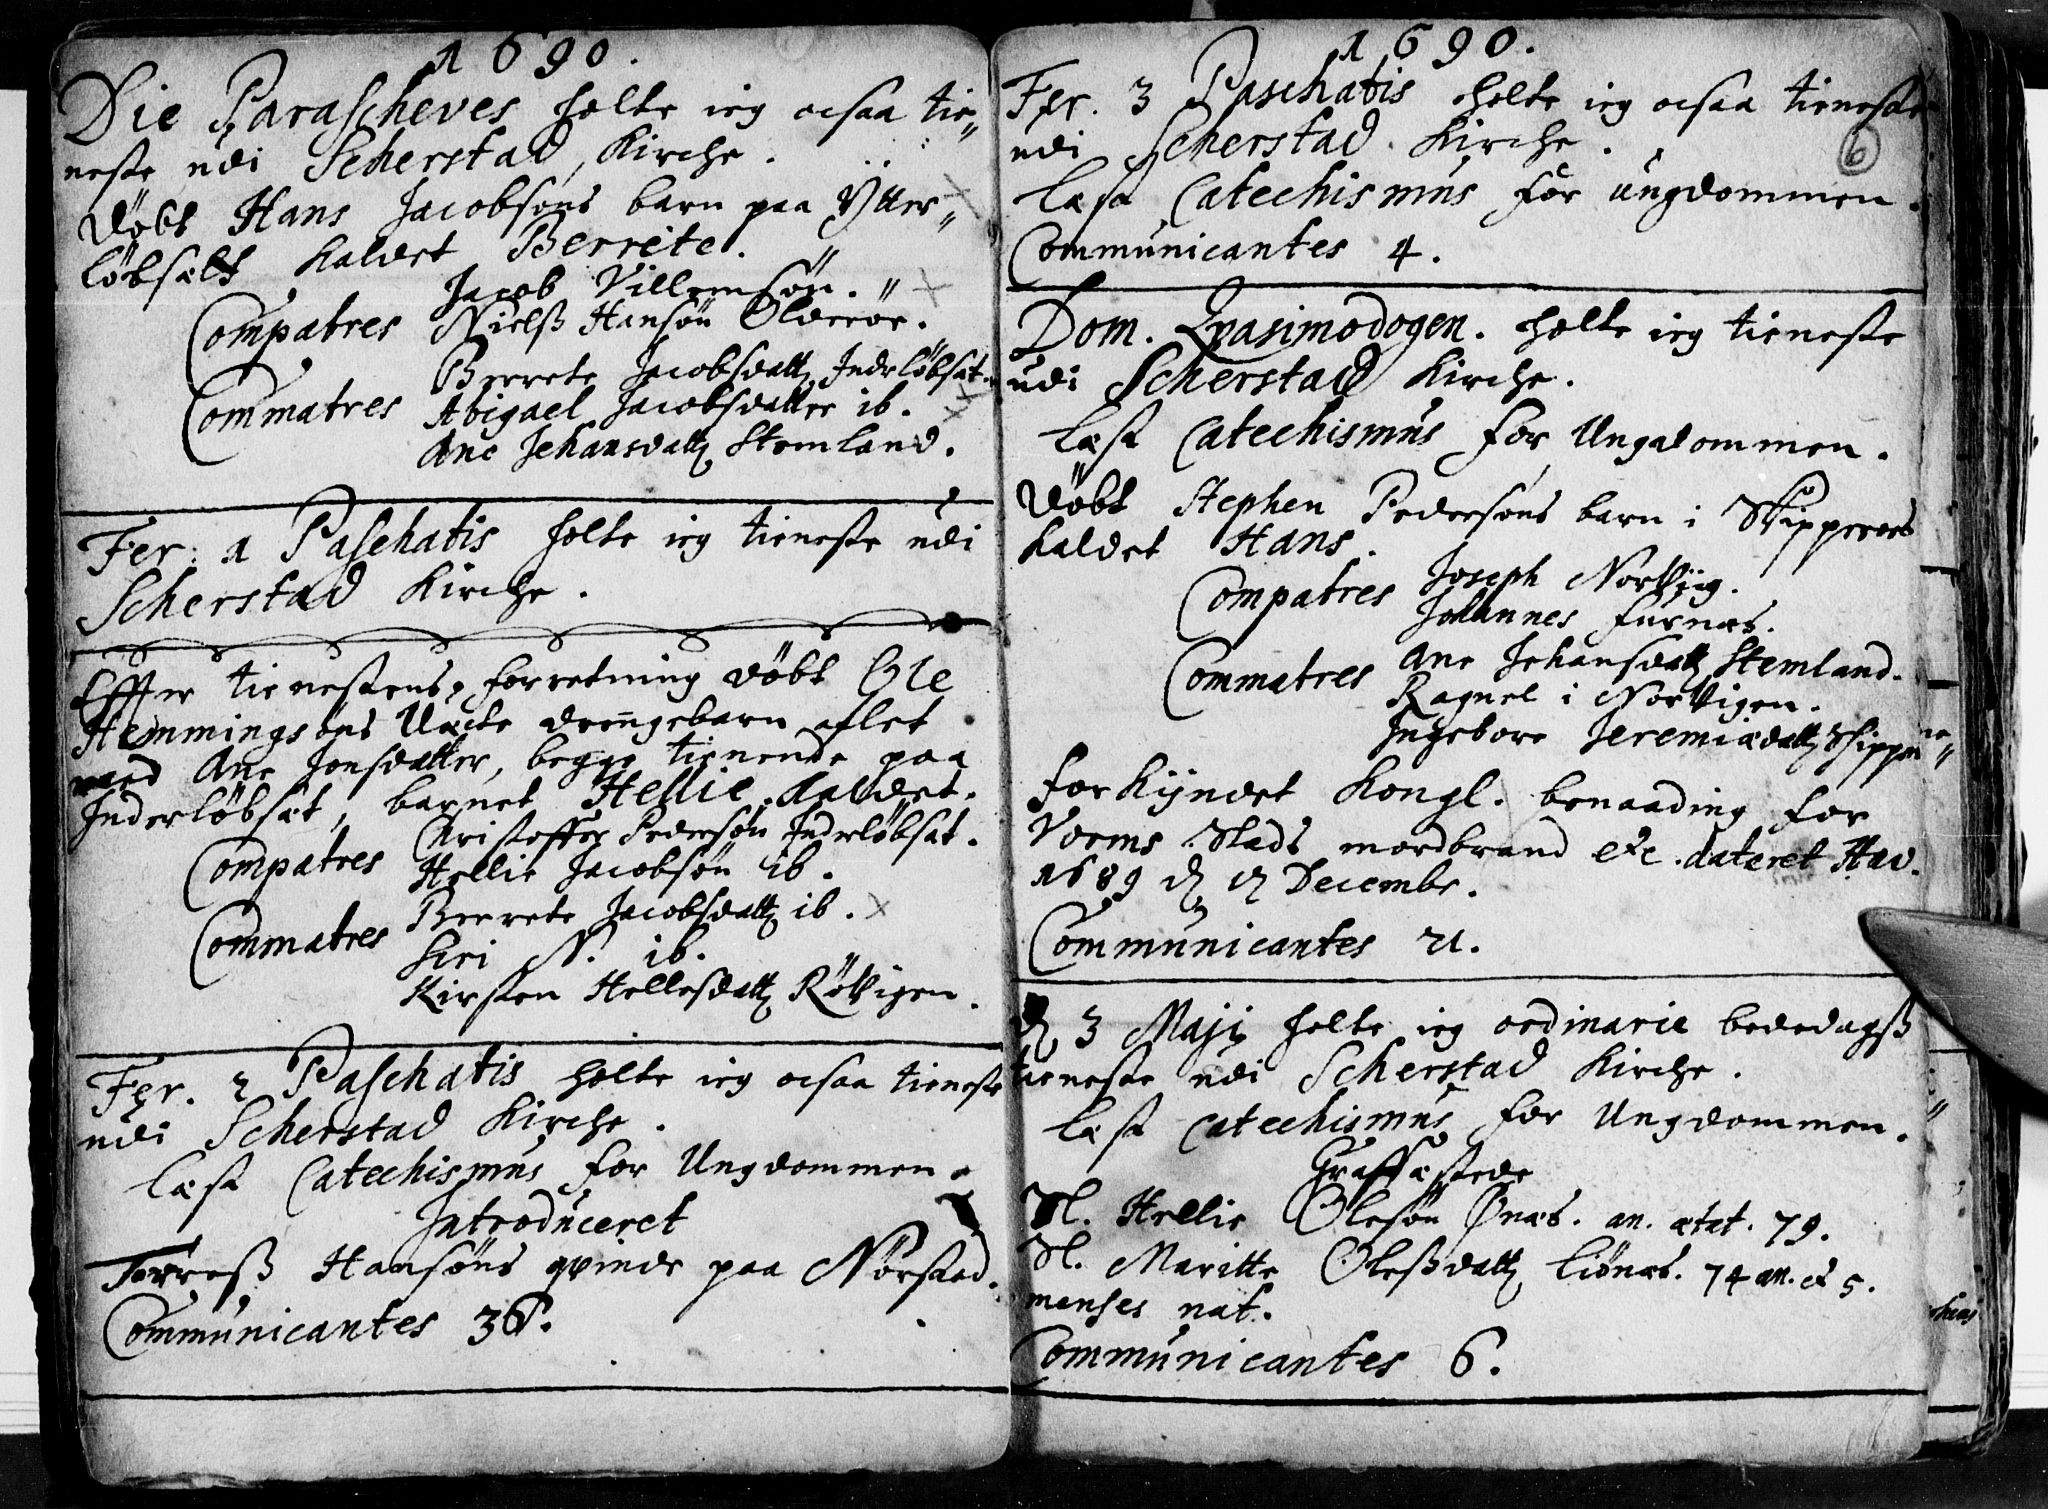 1690.
Die Parascheves holte ieg ocsaa tie„
neste udi Scherstad Kirche.
Døbt Hans Jacobsøns barn paa Ytter„
løbsæt kaldet Berrete.
Jacob Villemsøn.
Compatres Nielß Hansøn Olderøe.
Berrete Jacobsdatt Inderløbsæt.
Commatres Abigael Jacobsdatter ib.
Ane Jehansdatt Stemland.
Fer. 1 Paschatis holte ieg tieneste udi
Scherstad Kirche.
Effter tienestens forretning døbt Ole
Hemmingsøns Uæcte drengebarn aflet
med Ane Jonsdatter, begge tienende paa
Inderløbsæt, barnet Hellie kaldet.
Christoffer Pedersøn Inderløbsæt.
Compatres Hellie Jacobsøn ib.
Berrete Jacobsdatt ib.
Commatres Siri N. ib.
Kirsten Hellesdatt Røtvigen.
Fer. 2 Paschatis holte ieg ocsaa tieneste
udi Scherstad Kirche.
Læst Catechismus for Ungdommen.
Introduceret
Torreß Hansøns qvinde paa Nørstad.
Communicantes 36.
1690.
Fer. 3 Paschatis holte ieg ocsaa tieneste
udi Scherstad Kirche.
6
Læst Catechismus for ungdommen.
Communicantes 4.
Dom. Qvasimodogen. holte ieg tieneste
udi Scherstad Kirche.
Læst Catechismus for Ungdommen.
Døbt Stephen Pedersøns barn i Skipperøes
kaldet Hans.
Compatres Joseph Nortviig.
Johannes Furnæs.
Commatres Ane Jehansdatt Stemland.
Ragnel i Nortvigen.
Ingebore Jeremiædatt
forkÿndet Kongl. benaading for
Vorms Stads mordbrand etc. dateret Hav.
1689 d. 17 Decembr.
Communicantes 21.
d. 3 Maji holte ieg ordinarie bededagß
tieneste udi Scherstad Kirche.
Læst Catechismus for Ungdommen.
Graffæstede
Sl. Hellie Olesøn Ønæs. an. ætat. 79.
Sl. Maritte Oleßdatt Liønæs. 74 an. et 5.
menses nat.
Communicantes 6.